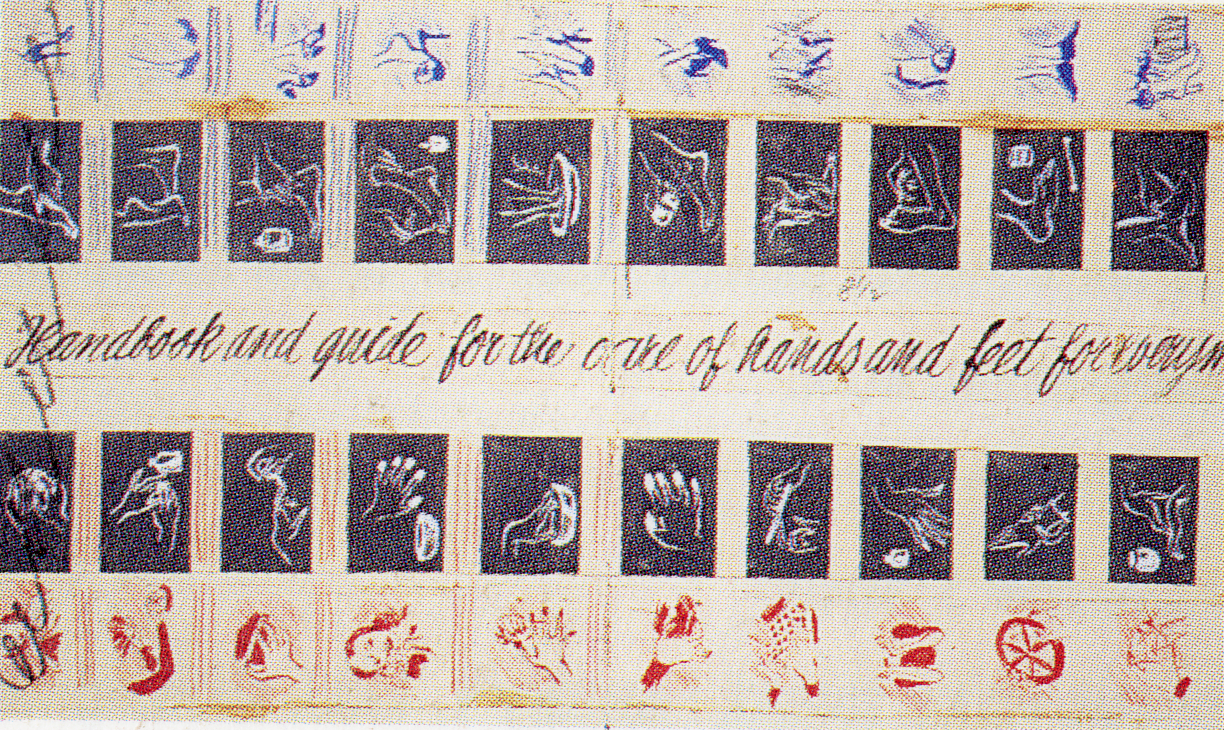 Handbook and guide for the care of hands and feet for